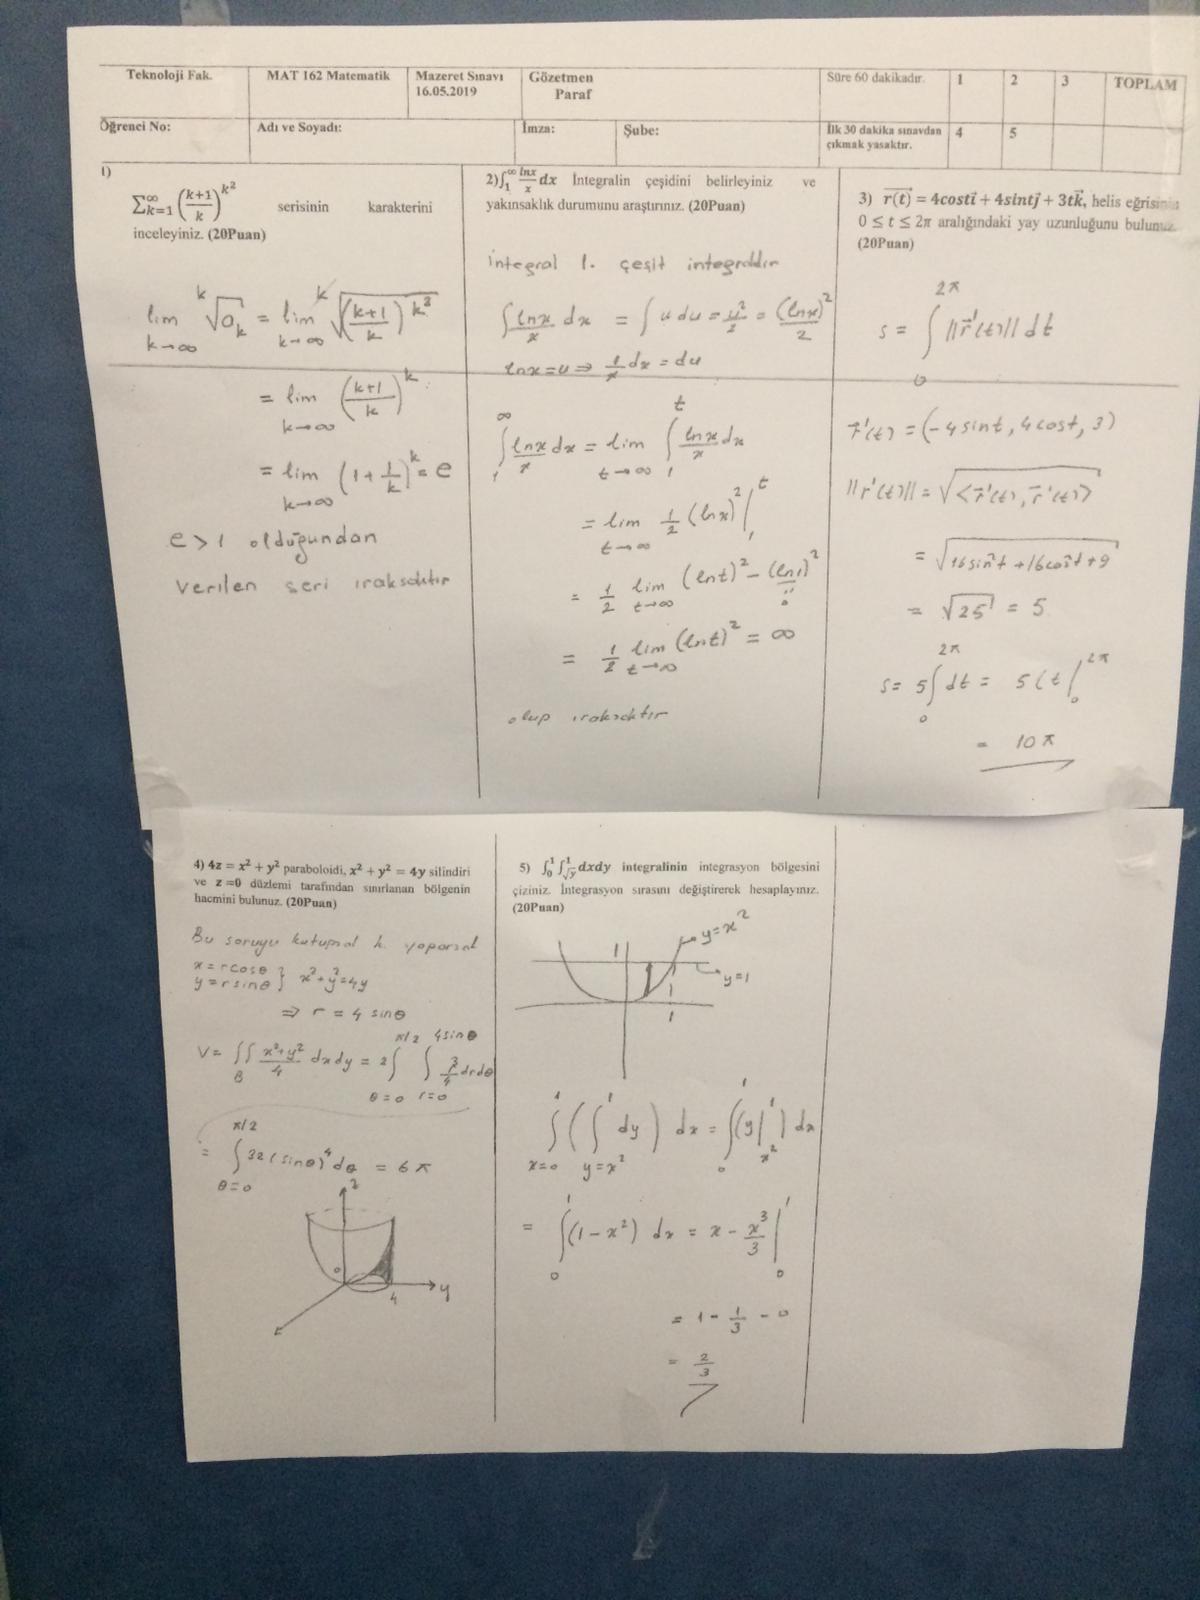 Teknoloji Fak.
MAT 162 Matematik
Mazeret Sınavı
16.05.2019
Gözetmen
Paraf
Süre 60 dakikadır.
1
2
3
TOPLAM
Öğrenci No:
Adı ve Soyadı:
İmza:
Şube:
İlk 30 dakika sınavdan
çıkmak yasaktır.
4
5
1)
∑_{k=1}^{∞} ((k+1)/k)^{k²} serisinin karakterini
inceleyiniz. (20Puan)
lim_{k→∞} ᵏ√a_k = lim_{k→∞} ᵏ√((k+1)/k)^{k²}
= lim_{k→∞} ((k+1)/k)^k
= lim_{k→∞} (1+1/k)^k = e
e>1 olduğundan
verilen seri ıraksaktır
2) ∫_1^∞ lnx/x dx İntegralin çeşidini belirleyiniz ve
yakınsaklık durumunu araştırınız. (20Puan)
integral 1. çeşit integraldir
∫ lnx/x dx = ∫ u du = u²/2 = (lnx)²/2
lnx=u ⇒ 1/x dx = du
∫_1^∞ lnx/x dx = lim_{t→∞} ∫_1^t lnx/x dx
= lim_{t→∞} 1/2 (lnx)² |_1^t
= 1/2 lim_{t→∞} (lnt)² - (ln1)²
0
= 1/2 lim_{t→∞} (lnt)² = ∞
olup ıraksaktır
3) r(t)⃗ = 4costi⃗ + 4sintj⃗ + 3tk⃗, helis eğrisinin
0 ≤ t ≤ 2π aralığındaki yay uzunluğunu bulunuz.
(20Puan)
s = ∫_0^{2π} ||r⃗'(t)|| dt
r⃗'(t) = (-4sint, 4cost, 3)
||r'(t)|| = √<r⃗'(t), r⃗'(t)>
= √16sin²t + 16cos²t + 9
= √25 = 5
s = 5∫_0^{2π} dt = 5(t|_0^{2π}
= 10π
4) 4z = x² + y² paraboloidi, x² + y² = 4y silindiri
ve z =0 düzlemi tarafından sınırlanan bölgenin
hacmini bulunuz. (20Puan)
Bu soruyu kutupsal k. yaparsak
x=rcosθ
y=rsinθ } x²+y²=4y
⇒ r = 4 sinθ
V= ∫∫_B (x²+y²)/4 dxdy = 2∫_{θ=0}^{π/2} ∫_{r=0}^{4sinθ} r³/4 drdθ
= ∫_{θ=0}^{π/2} 32(sinθ)⁴ dθ = 6π
z
0
4
y
5) ∫_0^1 ∫_{√y}^1 dxdy integralinin integrasyon bölgesini
çiziniz. İntegrasyon sırasını değiştirerek hesaplayınız.
(20Puan)
y=x²
1
y=1
1
∫_{x=0}^1 (∫_{y=x²}^1 dy) dx = ∫_0^1 (y|_{x²}^1) dx
= ∫_0^1 (1-x²) dx = x - x³/3 |_0^1
= 1 - 1/3 - 0
= 2/3